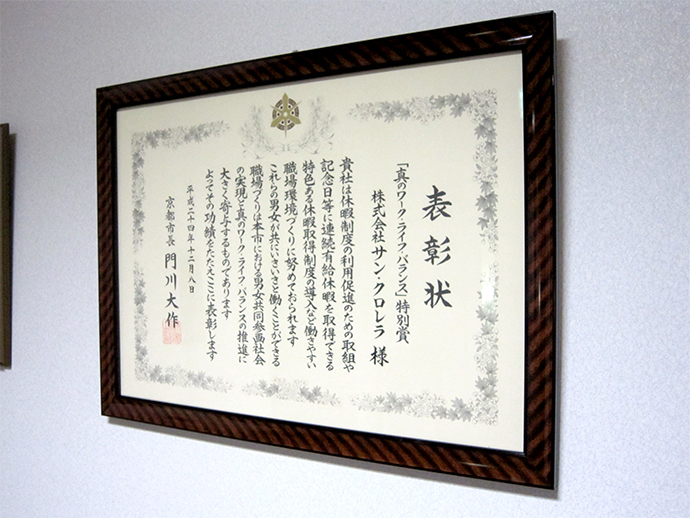 表彰状
「真のワーク・ライフ・バランス」特別賞
株式会社サン・クロレラ 様
貴社は休暇制度の利用促進のための取組や
記念日等に連続有給休暇を取得できる
特色ある休暇取得制度の導入など働きやすい
職場環境づくりに努めておられます
これらの男女が共にいきいきと働くことができる
職場づくりは本市における男女共同参画社会
の実現と真のワーク・ライフ・バランスの推進に
大きく寄与するものであります
よってその功績をたたえここに表彰します
平成二十四年十二月八日
京都市長 門川大作